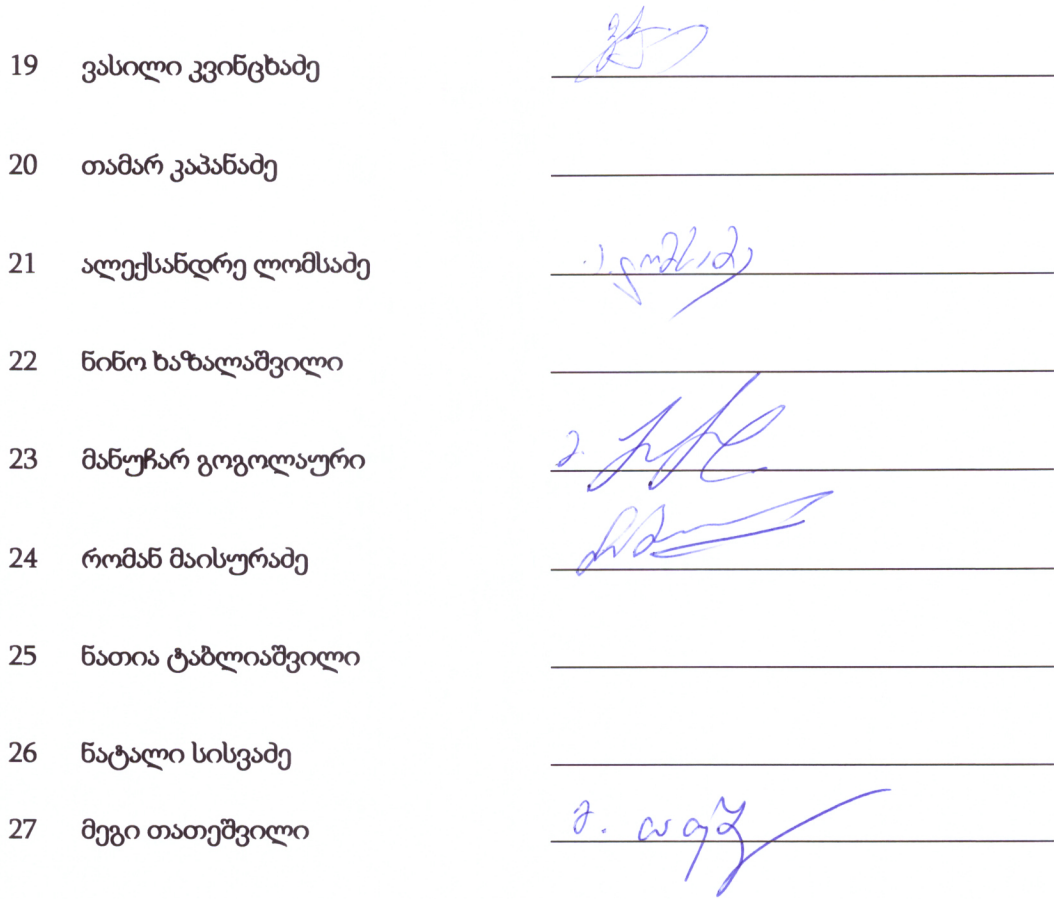 19 ვასილი კვინცხაძე
20 თამარ კაპანაძე
21 ალექსანდრე ლომსაძე ა.ლომსაძე
22 ნინო ხაზალაშვილი
23 მანუჩარ გოგოლაური
24 რომან მაისურაძე
25 ნათია ტაბლიაშვილი
26 ნატალი სისვაძე
27 მეგი თათეშვილი